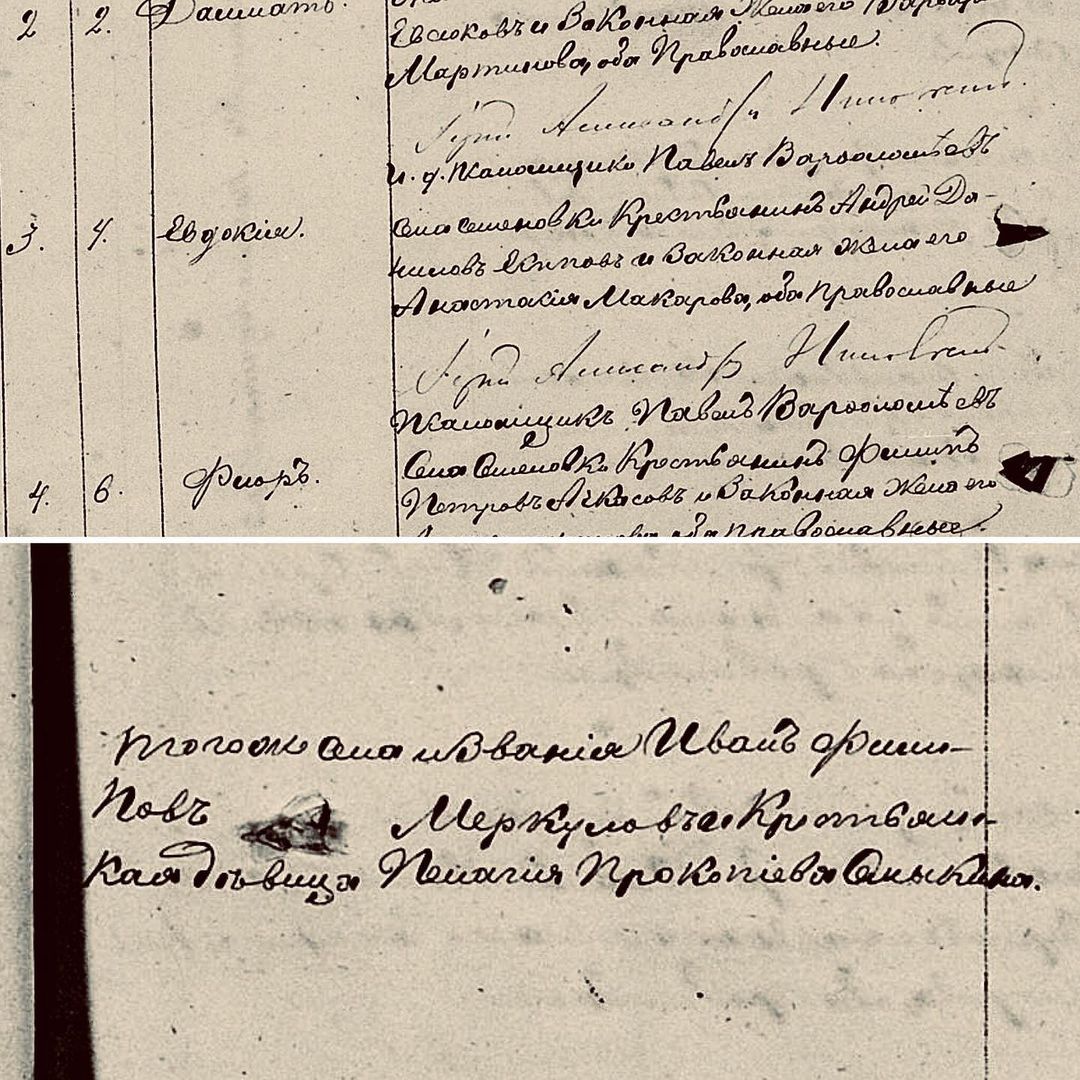 2 2. Далматъ. Евсюковъ и Законная Жена его Варвара
Мартинова, оба Православные.
Александръ
и. д. Псаломщика Павелъ Варѳоломѣевъ
3. 4. Евдокія. Села Семеновки Крестьянинъ Андрей Да-
ниловъ Есиповъ и Законная Жена его
Анастасія Макарова, оба Православные
Александръ
Псаломщикъ Павелъ Варѳоломѣевъ
4. 6. Флоръ. Села Семеновки Крестьянинъ Филипъ
Петровъ и Законная Жена его
оба Православные.
тогоже села и Званія Иванъ Филип-
повъ Меркуловъ и Крестьянс-
кая дѣвица Пелагія Прокопіева Смыкина.